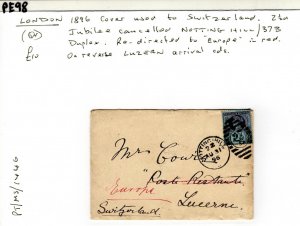 PE98
LONDON 1896 Cover used to Switzerland. 2½d
Jubilee cancelled NOTTING HILL/37B
Duplex. Re-directed to "Europe" in red.
£10 On reverse LUZERN arrival cds.
Mrs Cowie
"Poste Restante"
Europe
Lucerne
Switzerland